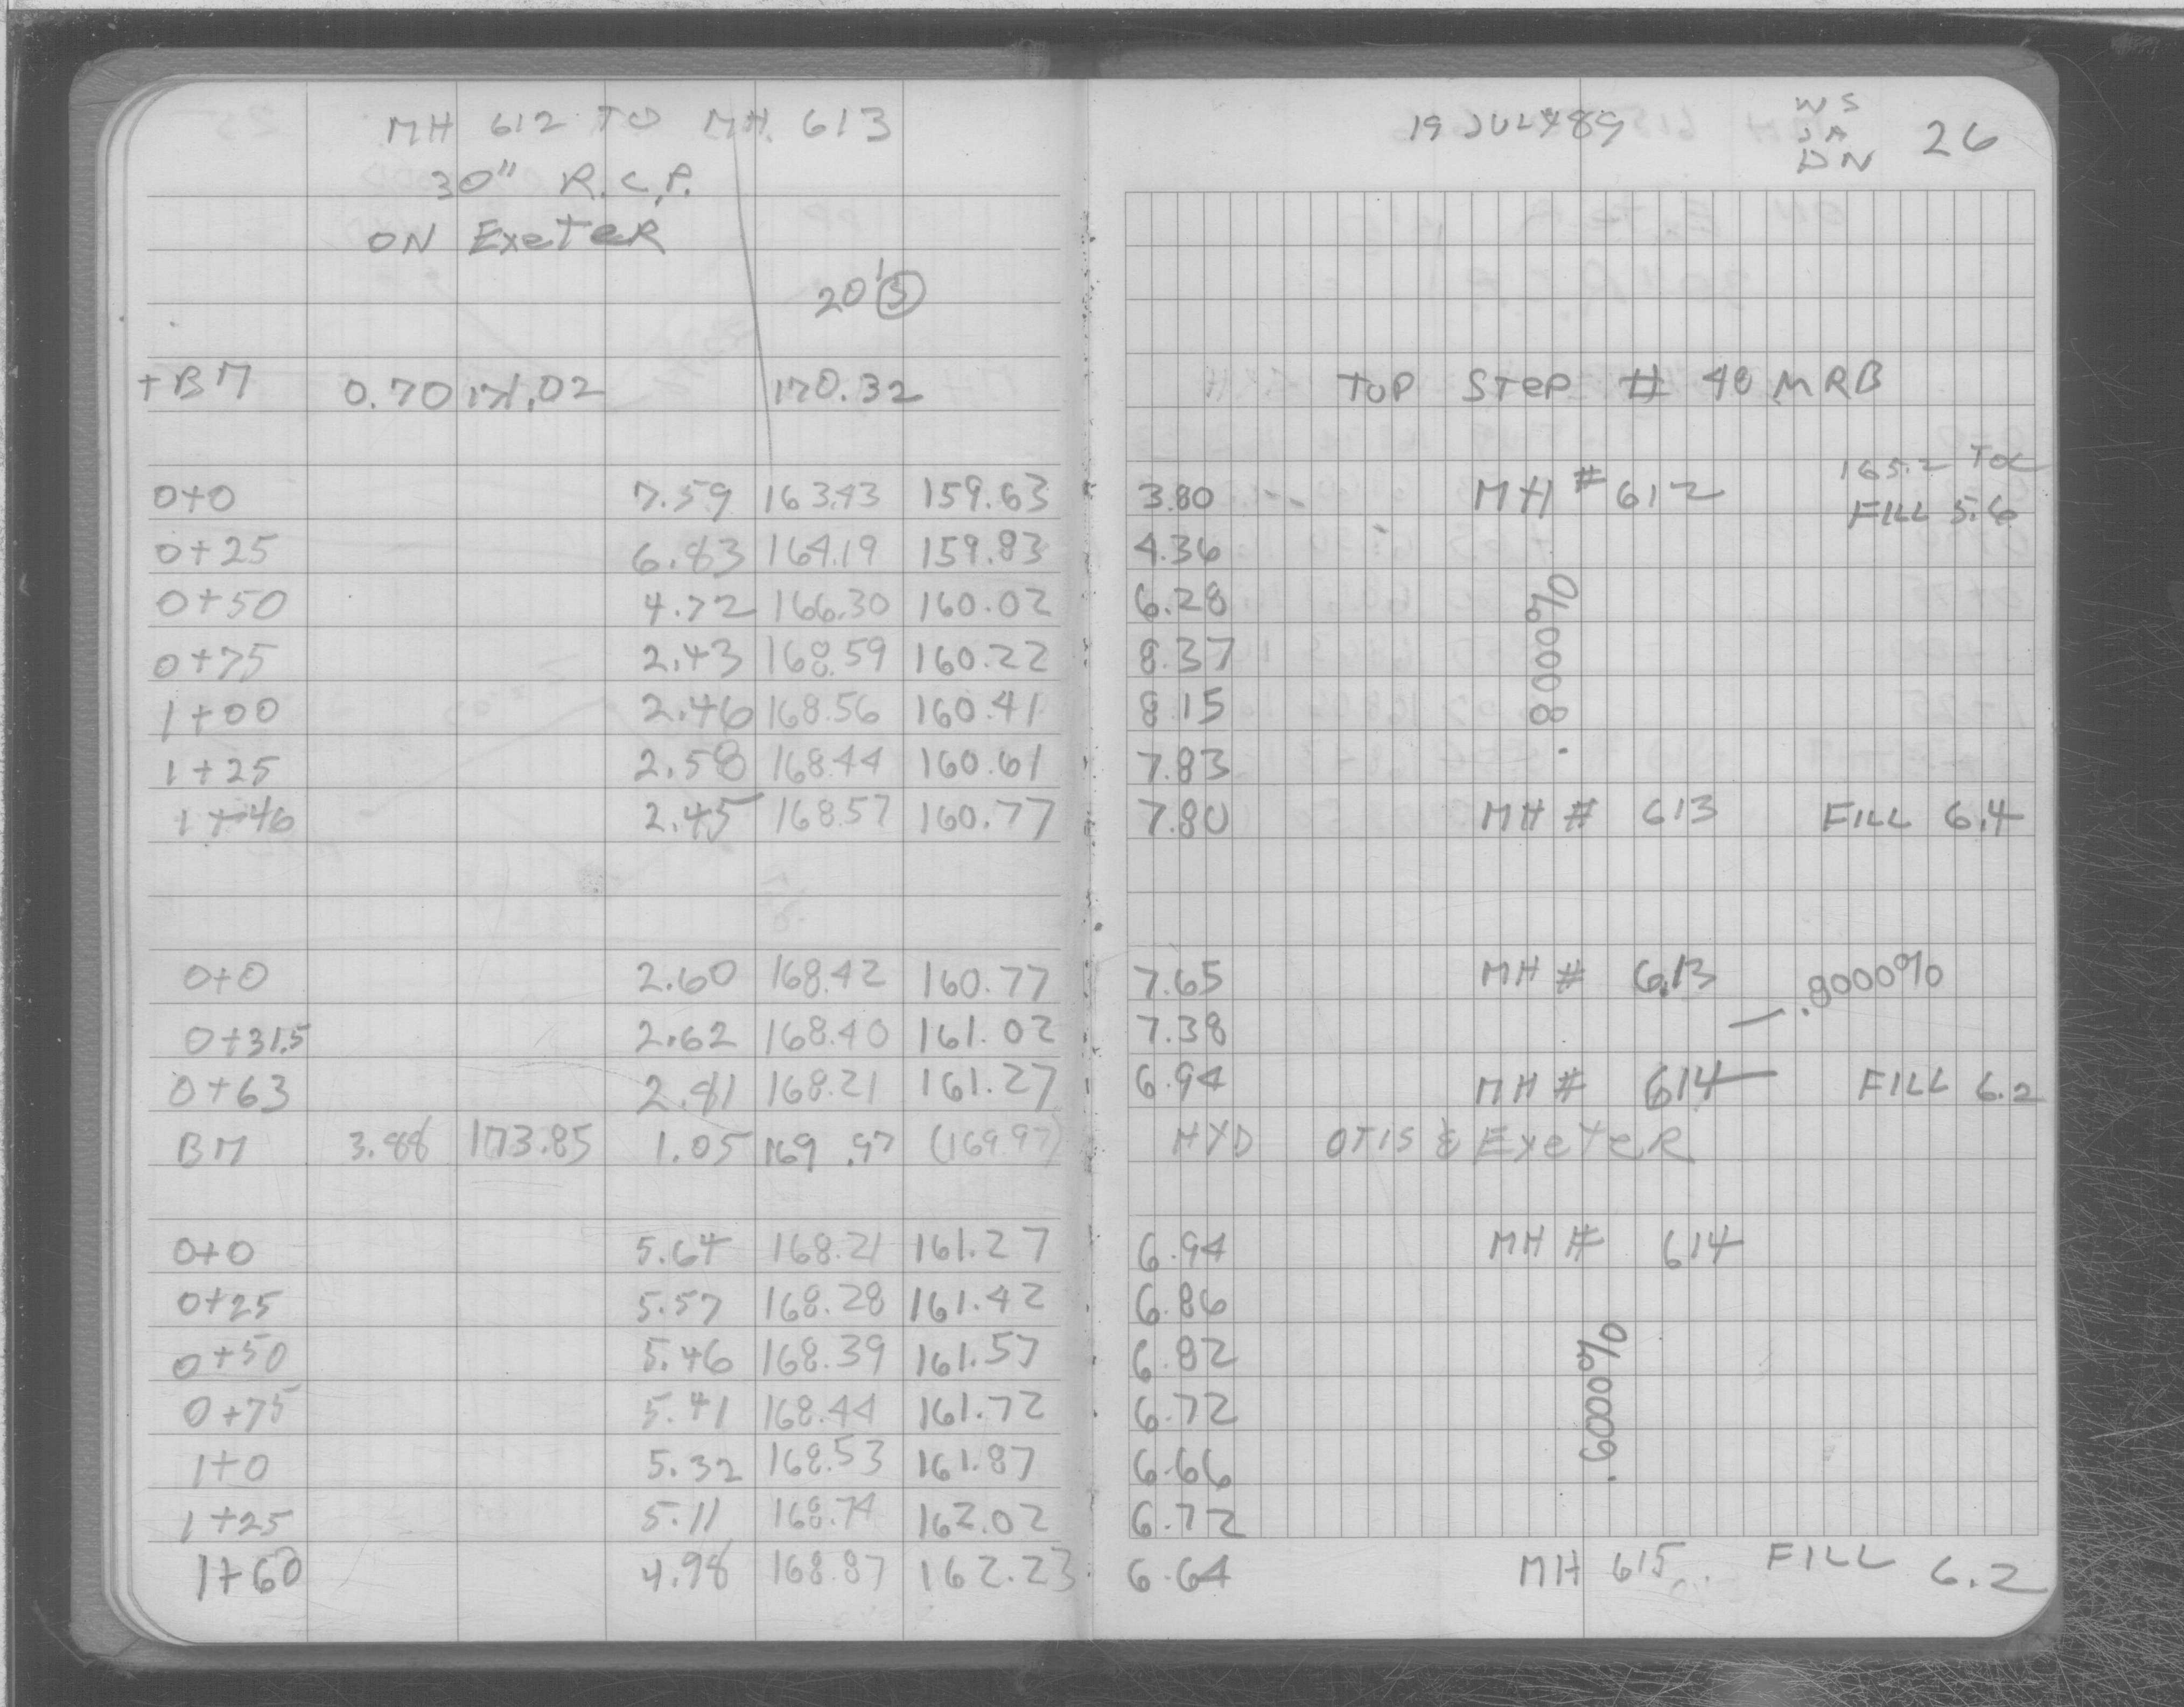 MH 612 TO MH 613 19 JULY 89 WS
JA
DN 26
30" R.C.P.
ON EXETER
20'
+BM 0.70 171.02 170.32 TOP STEP # 48 MRB
165.2 TOC
0+0 7.59 163.43 159.63 3.80 MH # 612 FILL 5.6
0+25 6.83 164.19 159.83 4.36
0+50 4.72 166.30 160.02 6.28
0+75 2.43 168.59 160.22 8.37
.8000%
1+00 2.46 168.56 160.41 8.15
1+25 2.58 168.44 160.61 7.83
1+46 2.45 168.57 160.77 7.80 MH # 613 FILL 6.4
0+0 2.60 168.42 160.77 7.65 MH # 613 .8000%
0+31.5 2.62 168.40 161.02 7.38
0+63 2.81 168.21 161.27 6.94 MH # 614 FILL 6.2
BM 3.88 173.85 1.05 169.97 (169.97) HYD OTIS & EXETER
0+0 5.64 168.21 161.27 6.94 MH # 614
0+25 5.57 168.28 161.42 6.86
0+50 5.46 168.39 161.57 6.82
0+75 5.41 168.44 161.72 6.72
.6000%
1+0 5.32 168.53 161.87 6.66
1+25 5.11 168.74 162.02 6.72
1+60 4.98 168.87 162.23 6.64 MH 615 FILL 6.2